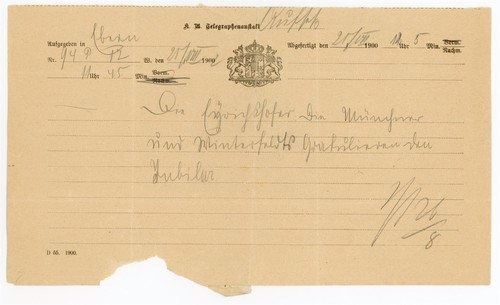 K. B. Telegraphenanstalt
Aufgegeben in Ebern
Nr. 94 P 12 W. den 25/VIII 1900
11 Uhr 45 Min. Vorm. Nachm.
Abgefertigt den 25/VIII 1900 12 Uhr 5 Min. Vorm. Nachm.
Die Eyrichshofer Die Münchner
und Winterfeldts Gratulieren den
Jubilar
26/8
D 55. 1900.